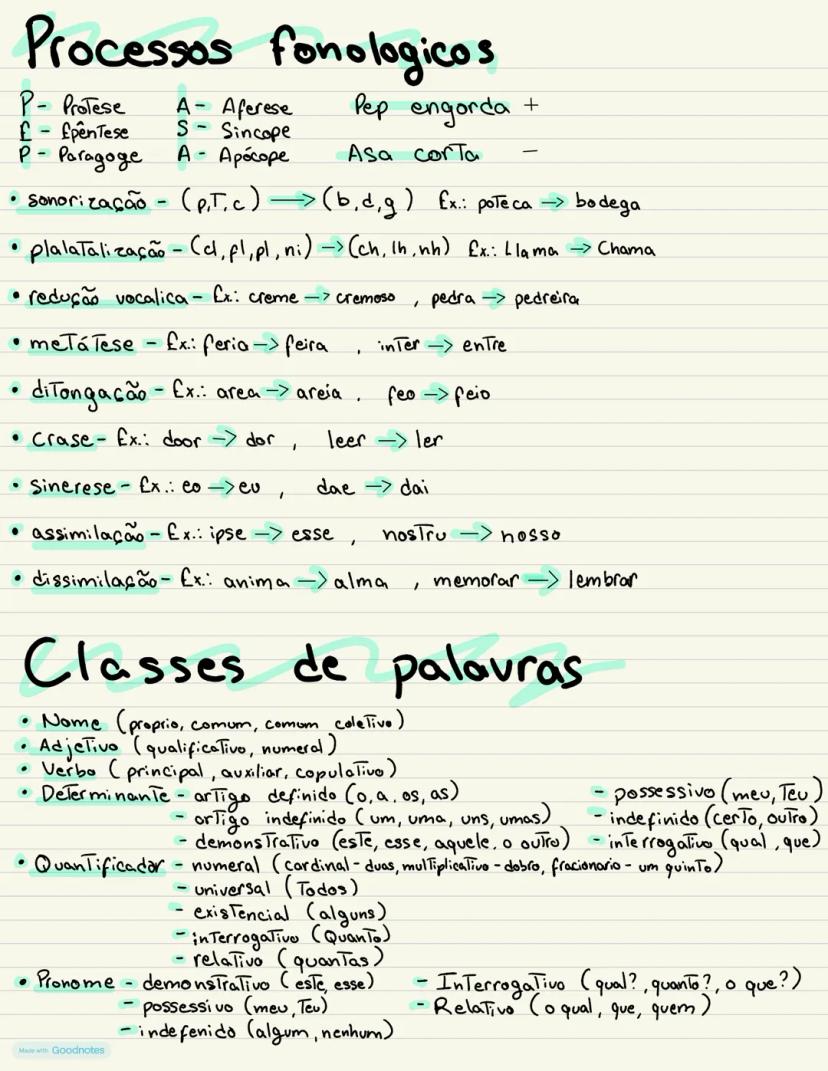 Processos fonologicos
P - Protese A - Aferese Pep engorda +
E - Epêntese S - Sincope
P - Paragoge A - Apócope Asa corta -
• sonorização - (p,t,c) → (b,d,g) Ex.: poteca → bodega
• plalatalização - (cl, fl, pl, ni) → (ch, lh, nh) Ex.: Llama → Chama
• redução vocalica - Ex.: creme → cremoso , pedra → pedreira
• metátese - Ex.: feria → feira , inter → entre
• ditongação - Ex.: area → areia , feo → feio
• crase - Ex.: door → dor , leer → ler
• sinerese - Ex.: eo → eu , dae → dai
• assimilação - Ex.: ipse → esse , nostru → nosso
• dissimilação - Ex.: anima → alma , memorar → lembrar
Classes de palavras
• Nome (proprio, comum, comum coletivo)
• Adjetivo (qualificativo, numeral)
• Verbo (principal, auxiliar, copulativo)
• Determinante - artigo definido (o, a, os, as) - possessivo (meu, teu)
- artigo indefinido (um, uma, uns, umas) - indefinido (certo, outro)
- demonstrativo (este, esse, aquele, o outro) - interrogativo (qual, que)
• Quantificador - numeral (cardinal - duas, multiplicativo - dobro, fracionario - um quinto)
- universal (todos)
- existencial (alguns)
- interrogativo (Quanto)
- relativo (quantas)
• Pronome - demonstrativo (este, esse) - Interrogativo (qual?, quanto?, o que?)
- possessivo (meu, teu) - Relativo (o qual, que, quem)
- indefenido (algum, nenhum)
Made with Goodnotes